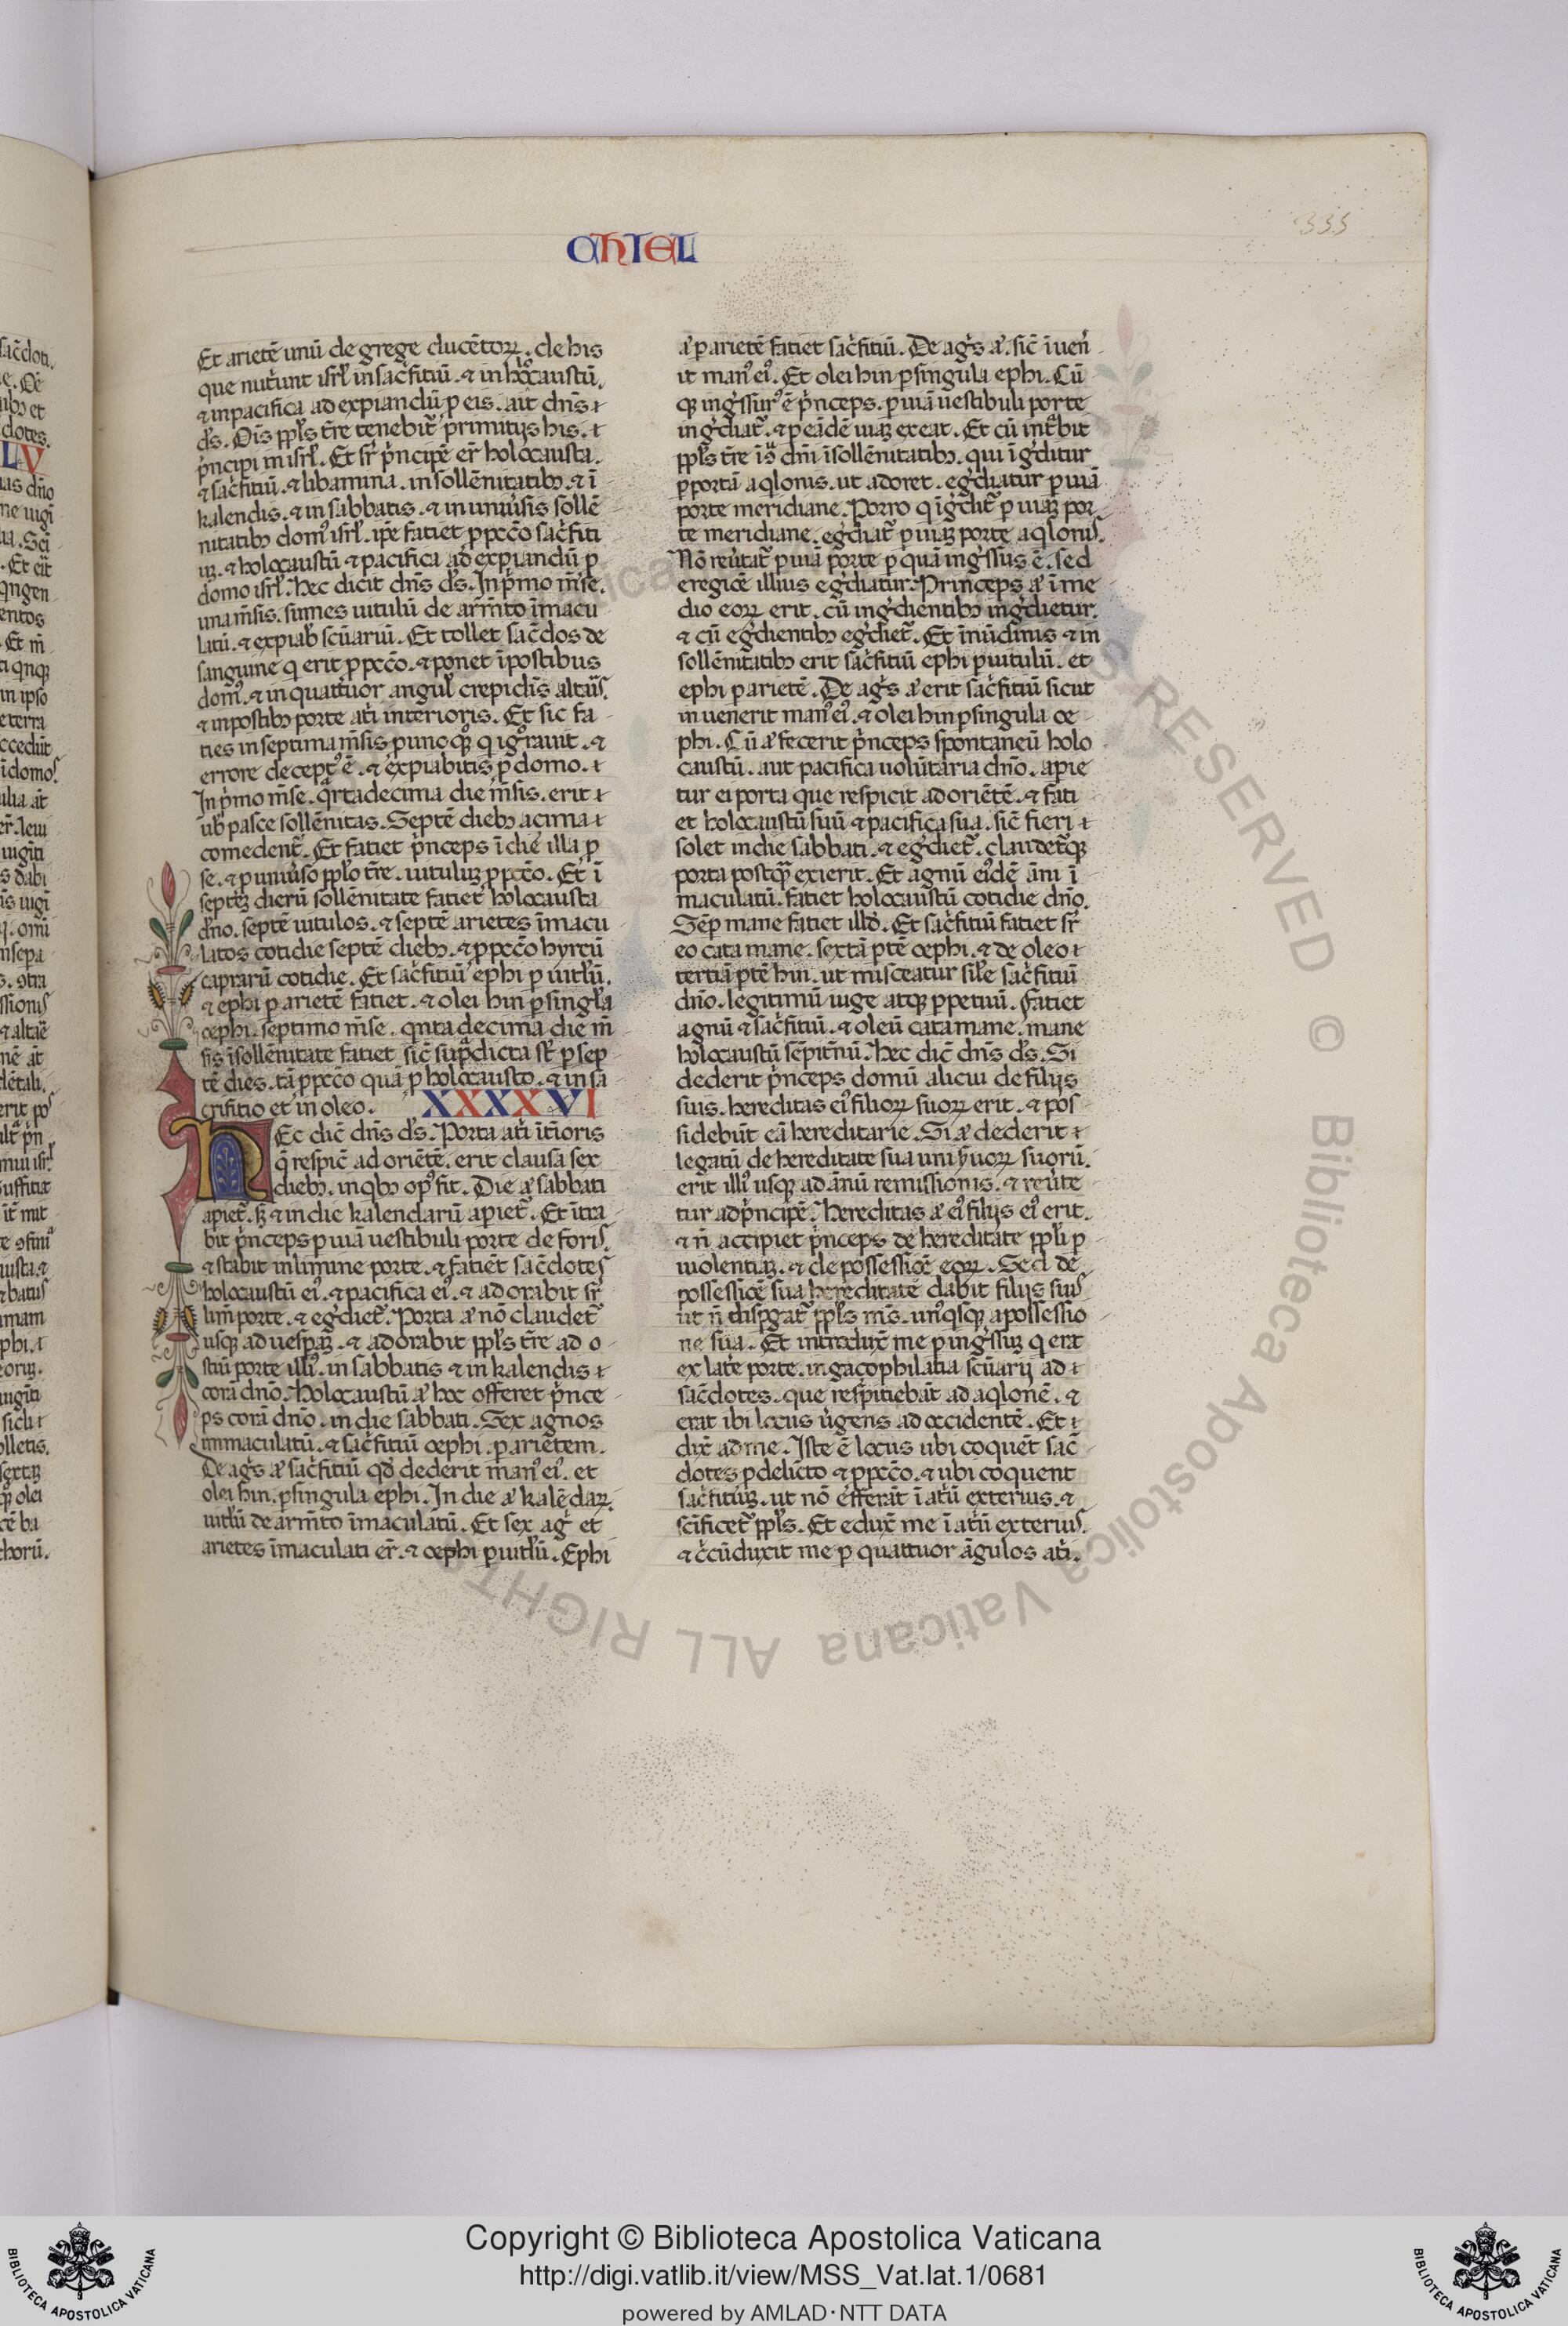 CHIEL
335
Et arietē unū de grege ducētoꝝ. de his
que nut̄unt isrl̄ in sac̄fitiū. ⁊ in holocaustū.
⁊ in pacifica ad expiandū ꝓ eis. ait dn̄s ⁊
ds̄. Oīs ppl̄s t̄re tenebit᷑ primitijs his. ⁊
p̄ncipi in isrl̄. Et sr̄ p̄ncipē er̄ holocausta.
⁊ sac̄fitiū. ⁊ libamina. in sollēnitatibꝫ. ⁊ ī
kalendis. ⁊ in sabbatis. ⁊ in uniūsis sollē
nitatibꝫ domꝰ isrl̄. ip̄e fatiet ꝓ pcc̄o sac̄fiti
uꝫ. ⁊ holocaustū ⁊ pacifica ad expiandū ꝓ
domo isrl̄. Hec dicit dn̄s ds̄. In p̄mo m̄se.
una m̄sis. sumes uitulū de arm̄to īmacu
latū. ⁊ expiab̄ scūariū. Et tollet sac̄dos de
sanguine q erit ꝓ pcc̄o. ⁊ ponet ī postibus
domꝰ. ⁊ in quattuor angul̄ crepidis̄ altar̄is.
⁊ in postibꝫ porte at̄i interioris. Et sic fa
ties in septima m̄sis ꝓ unoqꝫ q igr̄auit. ⁊
errore deceptꝰ ē. ⁊ expiabitis ꝓ domo. ⁊
In p̄mo m̄se. qr̄tadecima die m̄sis. erit ⁊
ub̄ pasce sollēnitas. Septē diebꝫ acima ⁊
comedent᷑. Et fatiet p̄nceps ī die illa ꝓ
se. ⁊ ꝓ uniūso ppl̄o t̄re. uituluꝫ ꝓ pcc̄o. Et ī
septeꝫ dierū sollēnitate fatiet holocausta
dn̄o. septē uitulos. ⁊ septē arietes īmacu
latos cotidie septē diebꝫ. ⁊ ꝓ pcc̄o hyrcū
caprarū cotidie. Et sac̄fitiū ephi ꝑ uitl̄ū.
⁊ ephi ꝑ arietē fatiet. ⁊ olei hin ꝑ singl̄a
oephi. septimo m̄se. qnta decima die m̄
sis ī sollēnitate fatiet sic̄ supͣdicta st̄ ꝑ sep
tē dies. tā ꝓ pcc̄o quā ꝓ holocausto. ⁊ in sa
crifitio et in oleo. XXXXVI
Hec dic̄ dn̄s ds̄. Porta at̄i īt̄ioris
q̄ respic̄ ad oriētē. erit clausa sex
diebꝫ. in qbꝫ opꝰ fit. Die aͧ sabbati
apiet᷑. sꝫ ⁊ in die kalendarū apiet᷑. Et ītra
bit p̄nceps ꝑ uiā uestibuli porte de foris.
⁊ stabit in limine porte. ⁊ fatiēt sac̄dotes
holocaustū eiꝰ. ⁊ pacifica eiꝰ. ⁊ adorabit sr̄
lim̄ porte. ⁊ egr̄diet᷑. Porta aͧ nō claudet᷑
usqꝫ ad uesꝑaꝫ. ⁊ adorabit ppl̄s t̄re ad o
stiū porte illiꝰ. in sabbatis ⁊ in kalendis ⁊
corā dn̄o. Holocaustū aͧ hoc offeret p̄nce
ps corā dn̄o. in die sabbati. Sex agnos
immaculatū. ⁊ sac̄fitiū oephi. ꝑ arietem.
De agīs aͧ sac̄fitiū qd̄ dederit manꝰ eiꝰ. et
olei hin. ꝑ singula ephi. In die aͧ kalēdaꝝ.
uitl̄ū de arm̄to īmaculatū. Et sex aḡ et
arietes īmaculati er̄. ⁊ oephi ꝑ uitl̄ū. Ephi
aͧ ꝑ arietē fatiet sac̄fitiū. De agīs aͧ. sic̄ īuen̄
it manꝰ eiꝰ. Et olei hin ꝑ singula ephi. Cū
qꝫ ingr̄ssurꝰ ē p̄nceps. ꝑ uiā uestibuli porte
ingr̄diat᷑. ⁊ ꝑ eādē uiaꝫ exeat. Et cū intͣbit
ppl̄s t̄re ī ↄͣ dn̄i ī sollēnitatibꝫ. qui īgr̄ditur
ꝑ portā aqlonis. ut adoret. egr̄diatur ꝑ uiā
porte meridiane. Porro q īgr̄dit᷑ ꝑ uiaꝫ por
te meridiane. egr̄diat᷑ ꝑ uiaꝫ porte aqlonis.
Nō reūtat᷑ ꝑ uiā porte ꝑ quā ingr̄ssus ē. sed
e regiōe illius egr̄diatur. Princeps aͧ ī me
dio eoꝝ erit. cū ingr̄dientibꝫ ingr̄dietur.
⁊ cū egr̄dientibꝫ egr̄diet᷑. Et ī nūdinis ⁊ in
sollēnitatibꝫ erit sac̄fitiū ephi ꝑ uitulū. et
ephi ꝑ arietē. De agīs aͧ erit sac̄fitiū sicut
in uenerit manꝰ eiꝰ. ⁊ olei hin ꝑ singula oe
phi. Cū aͧ fecerit p̄nceps spontaneū holo
caustū. aut pacifica uolūtaria dn̄o. apie
tur ei porta que respicit ad oriētē. ⁊ fati
et holocaustū suū ⁊ pacifica sua. sic̄ fieri ⁊
solet in die sabbati. ⁊ egr̄diet᷑. claudet᷑qꝫ
porta postqͣꝫ exierit. Et agnū eiꝰdē āni ī
maculatū. fatiet holocaustū cotidie dn̄o.
Sēꝑ mane fatiet illd̄. Et sac̄fitiū fatiet sr̄
eo cata mane. sextā ꝑtē oephi. ⁊ de oleo ⁊
tertiā ꝑtē hin. ut misceatur sil̄e sac̄fitiū
dn̄o. legitimū iuge atqꝫ ꝑpetuū. Fatiet
agnū ⁊ sac̄fitiū. ⁊ oleū cata mane. mane
holocaustū sēpit̄nū. Hec dic̄ dn̄s ds̄. Si
dederit p̄nceps domū alicui de filijs
suis. hereditas eiꝰ filioꝝ suoꝝ erit. ⁊ pos
sidebūt eā hereditarie. Si aͧ dederit ⁊
legatū de hereditate sua uni s̄uoꝝ suorū.
erit illiꝰ usqꝫ ad ānū remissionis. ⁊ reūte
tur ad p̄ncipē. Hereditas aͧ eiꝰ filijs eiꝰ erit.
⁊ n̄ accipiet p̄nceps de hereditate ppl̄i ꝑ
uiolentiaꝫ. ⁊ de possessiōe eoꝝ. Sed de
possessiōe sua hereditatē dabit filijs suis
ut n̄ dispgat᷑ ppl̄s mꝰs. unꝰqsqꝫ a possessio
ne sua. Et introdux̄ me ꝑ ingr̄ssuꝫ q erat
ex late porte. in gaçophilatia scūarij ad ⁊
sac̄dotes. que respitiebāt ad aqlonē. ⁊
erat ibi locus ūgens ad occidentē. Et ⁊
dix̄ ad me. Iste ē locus ubi coquēt sac̄
dotes ꝓ delicto ⁊ ꝓ pcc̄o. ⁊ ubi coquent
sac̄fitiuꝫ. ut nō efferāt ī atiū exterius. ⁊
sc̄ificet᷑ ppl̄s. Et edux̄ me ī atiū exterius.
⁊ c̄cūduxit me ꝑ quattuor āgulos at̄i.
Copyright © Biblioteca Apostolica Vaticana
http://digi.vatlib.it/view/MSS_Vat.lat.1/0681
powered by AMLAD·NTT DATA
BIBLIOTECA APOSTOLICA VATICANA
BIBLIOTECA APOSTOLICA VATICANA